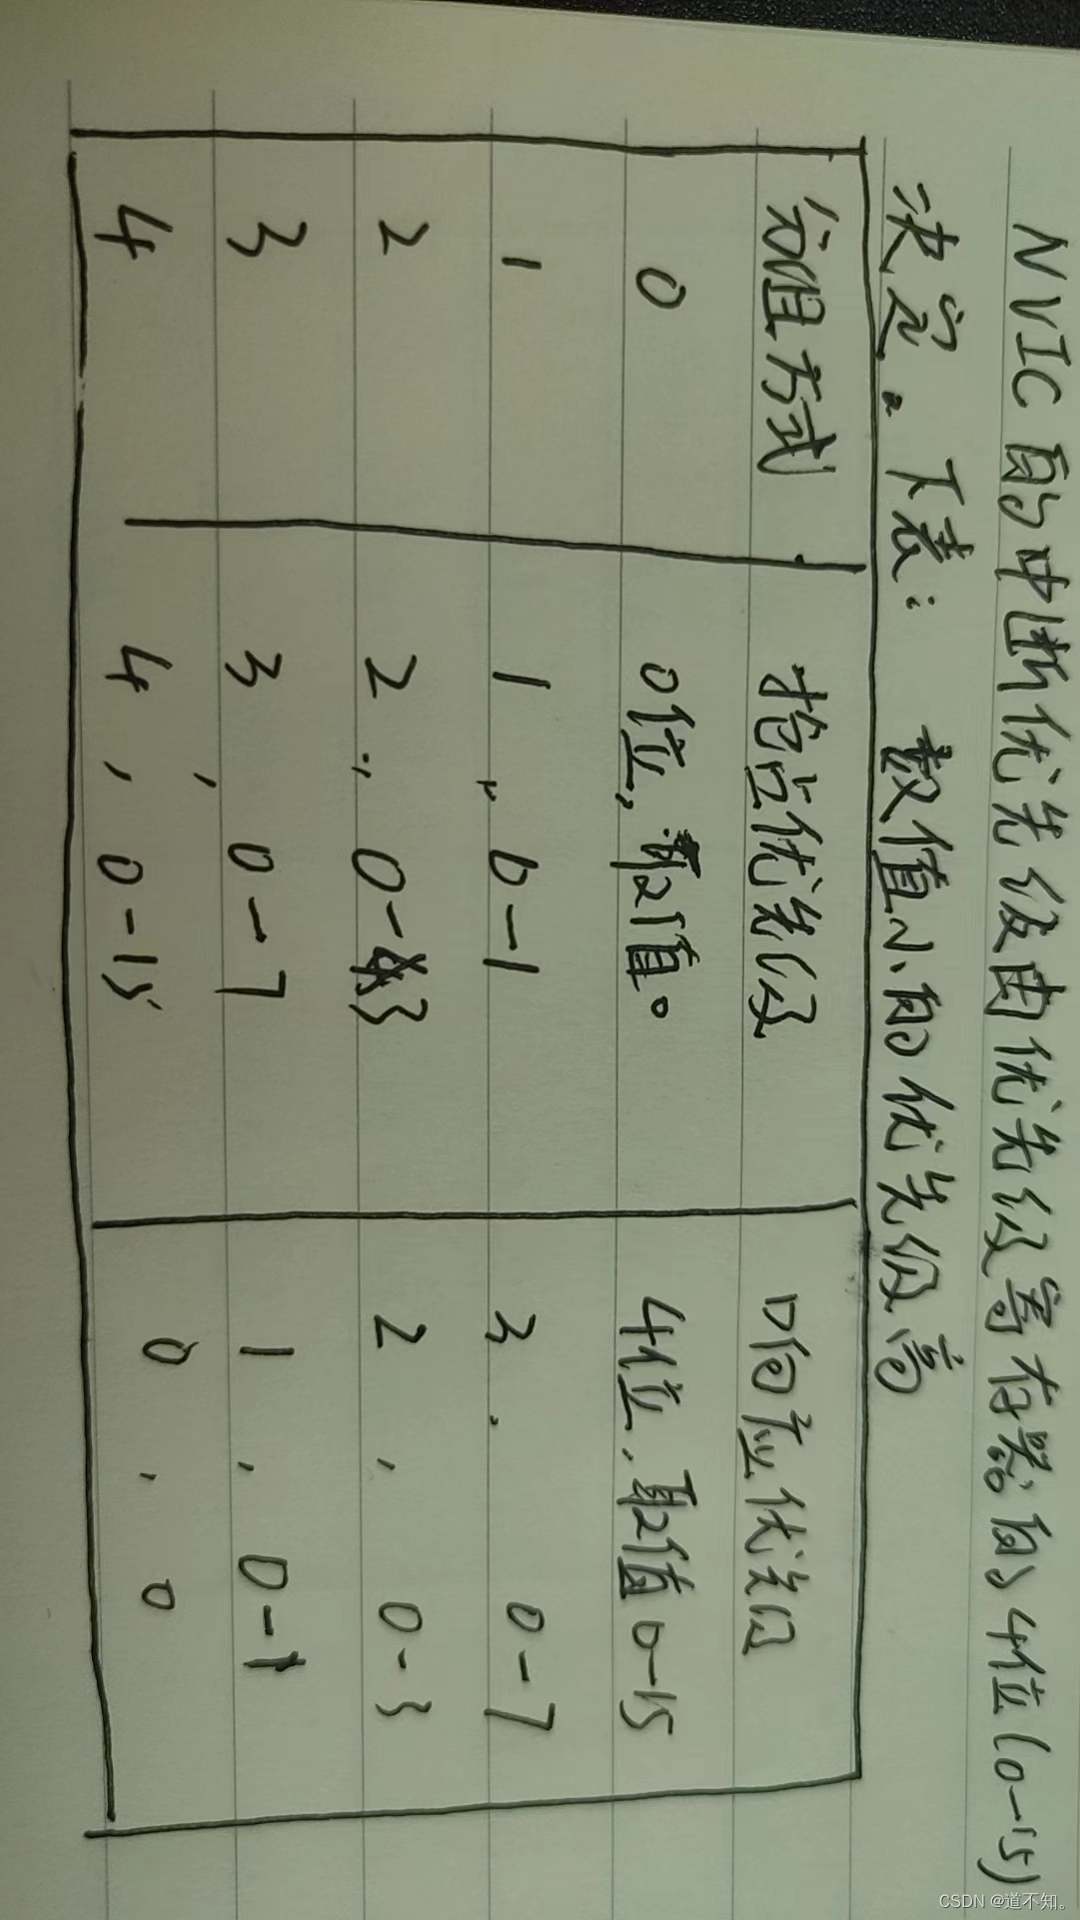 NVIC的中断优先级由优先级寄存器的4位(0-15)
决定。下表： 数值小的优先级高
分组方式 抢占优先级 响应优先级
0 0位，取值。 4位，取值0-15
1 1，，0-1 3. 0-7
2 2，，0-3 2，0-3
3 3，0-7 1，0-1
4 4，0-15 0，0
CSDN @道不知。